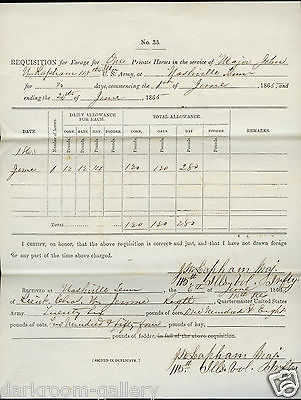 No. 33.
REQUISITION for Forage for One Private Horses in the service of Major John
W Lapham 115th Ills U. S. Army, at Nashville Tenn
for 20 days, commencing the 1st of June 1865, and
ending the 20th of June, 1865
DAILY ALLOWANCE FOR EACH. TOTAL ALLOWANCE.
DATE. Number of horses. CORN. OATS. HAY. CORN. OATS. HAY. REMARKS.
Pounds. Pounds. Pounds. Pounds. Pounds. Pounds.
1865
June 1 12 12 14 120 120 280
TOTAL 120 120 280
I CERTIFY, on honor, that the above requisition is correct and just, and that I have not drawn forage
for any part of the time above charged.
J W Lapham Maj.
115th Ills Vol. Infty
RECEIVED at Nashville Tenn the of June 1865
of Lieut Chas W Jerome Regtl Quartermaster United States
Army, pounds of corn, One Hundred & Eight
pounds of oats, Hundred & fifty four pounds of hay,
pounds of fodder, in full of the above requisition.
J W Lapham Maj
115th Ills Vol Infty
[SIGNED IN DUPLICATE.]
darkroom-gallery